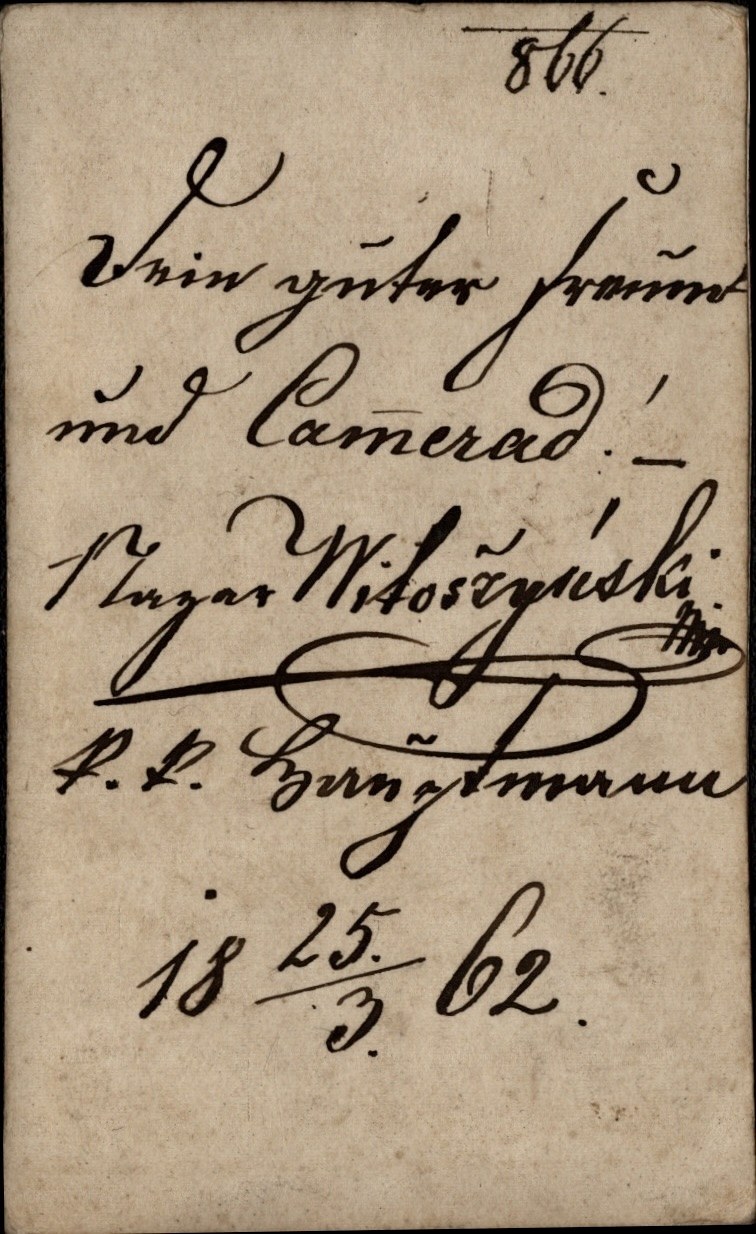 866.
Dein guter Freund
und Cam̅erad! –
Nazar Witoszyński
k. k. Hauptmann
18 25./3. 62.